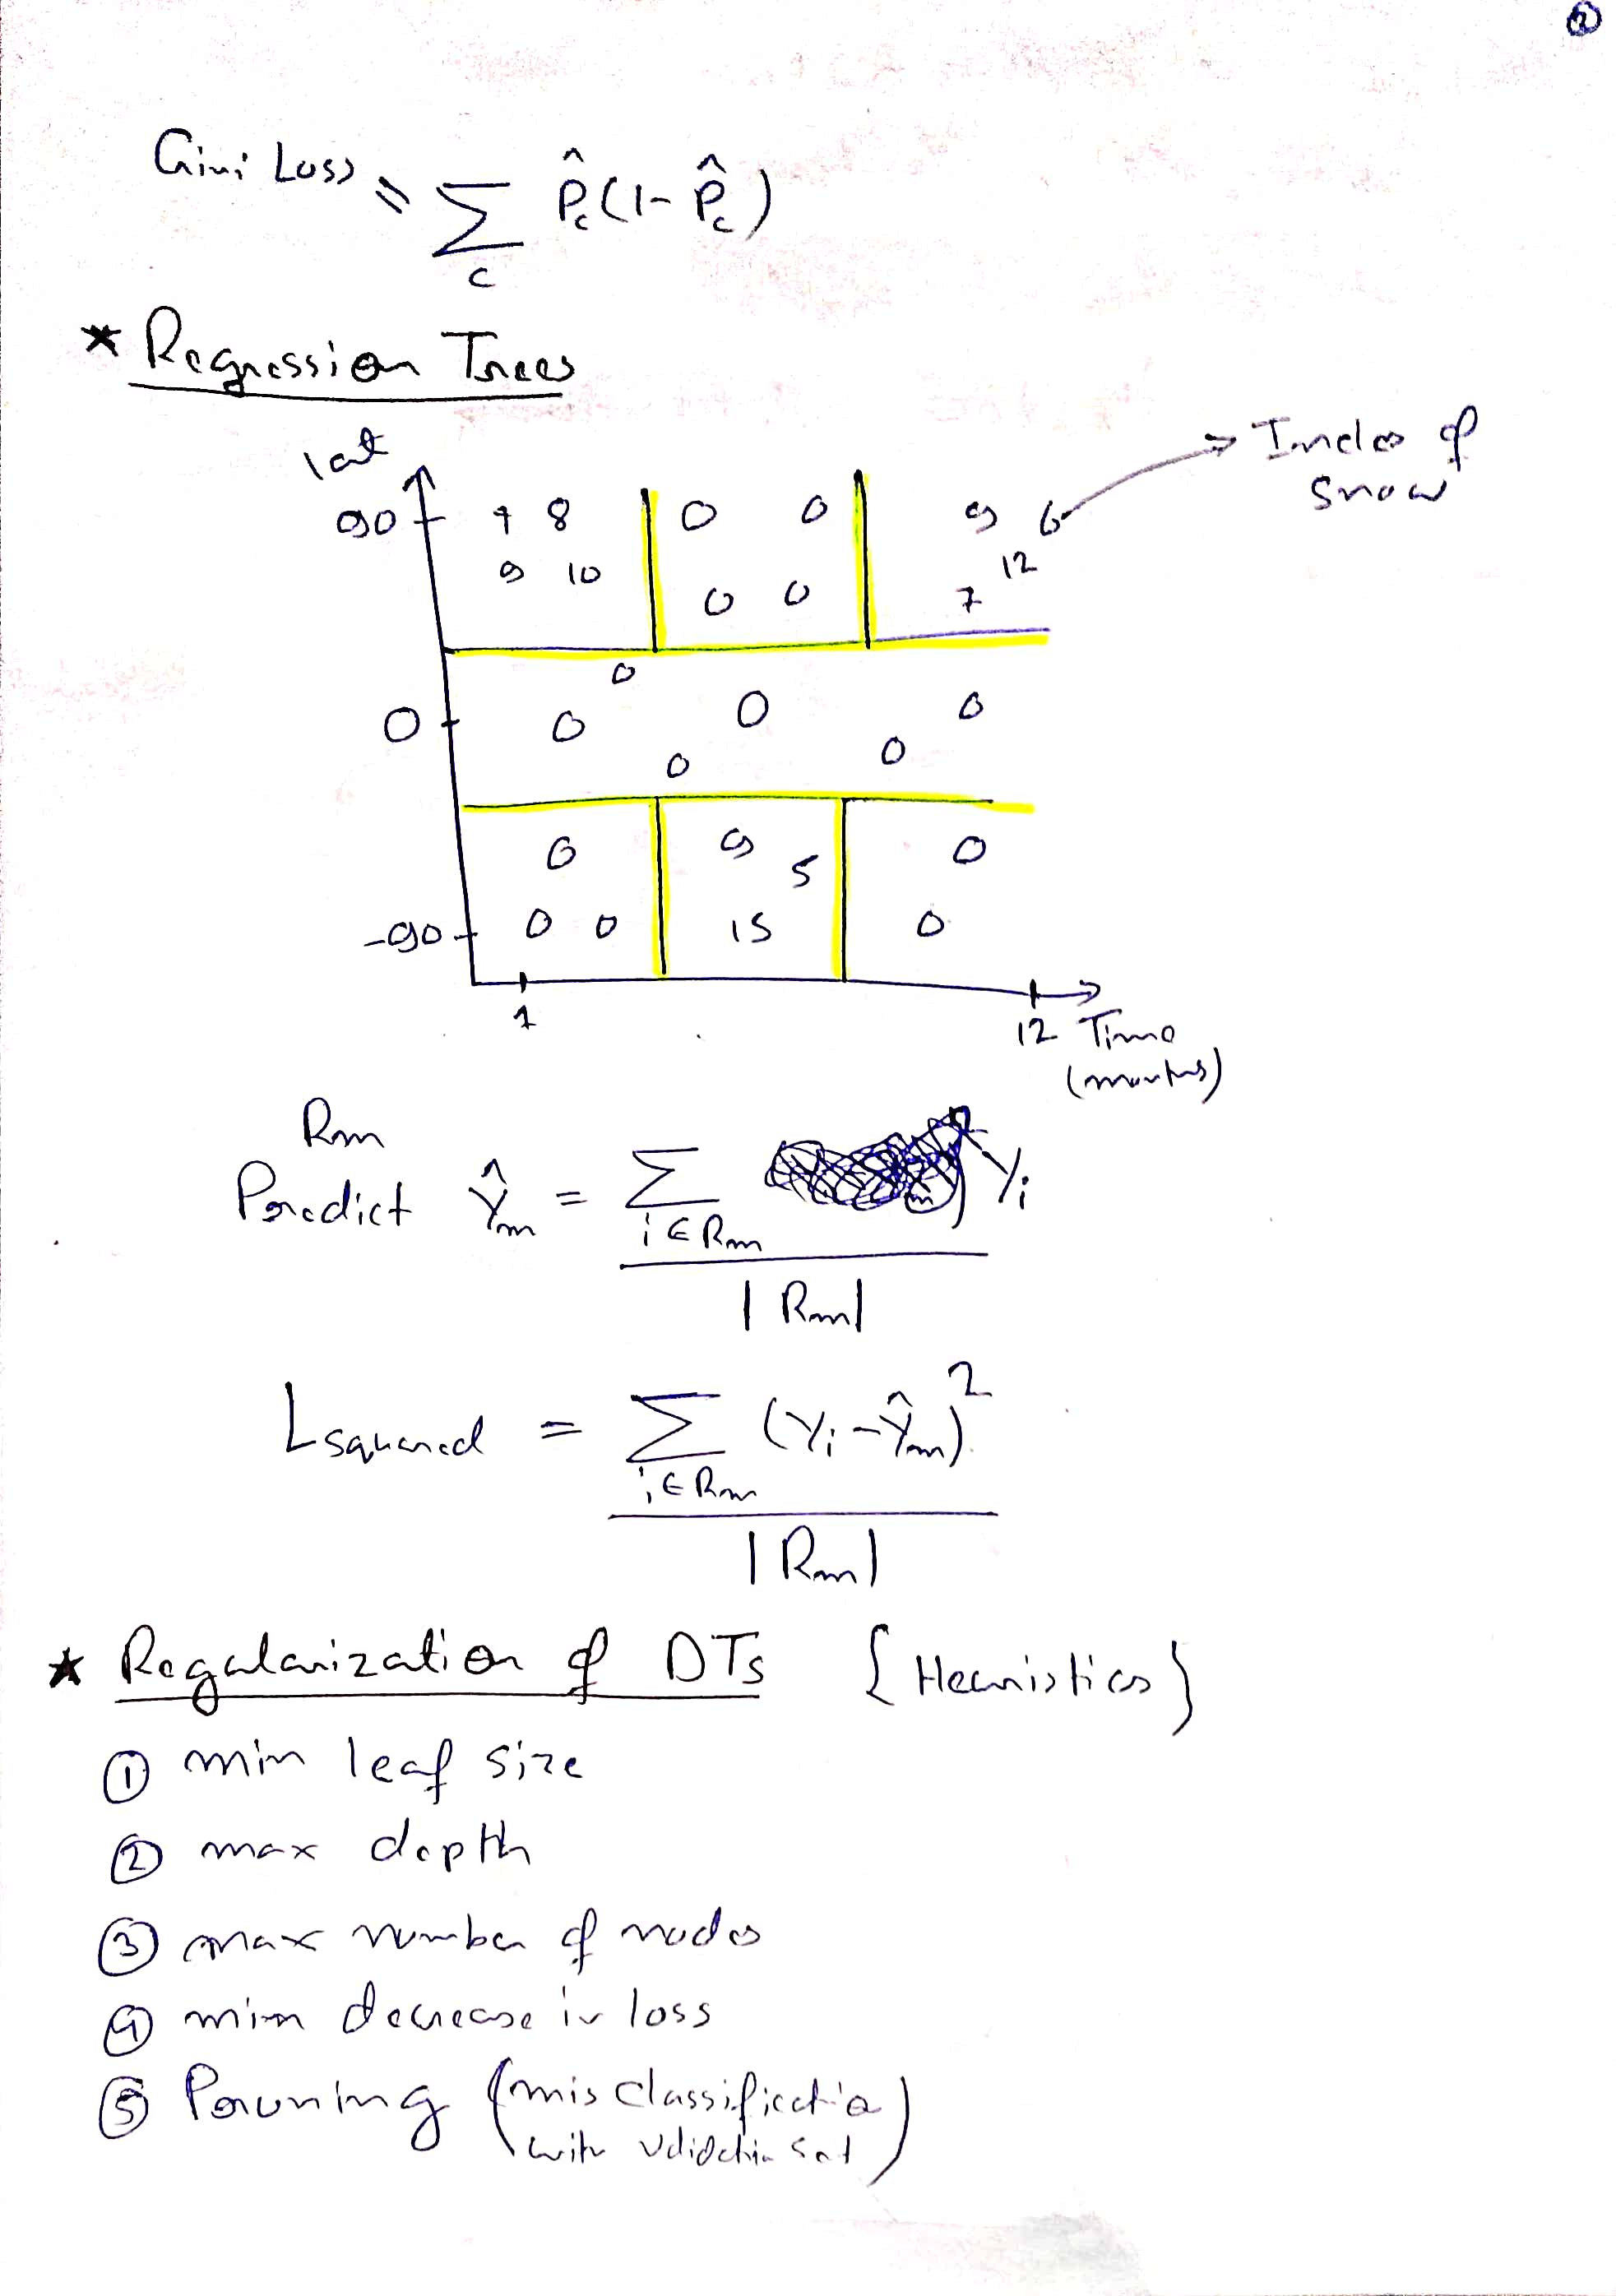 ②
Gini Loss = ∑_c P̂_c(1-P̂_c)
* Regression Trees
lat
90 9 8 0 0 9 6 → Index of
Snow
9 10 0 0 7 12
0
0 0 0 0
0 0
0 9 5 0
-90 0 0 15 0
1 12 Time
(months)
Rm
Predict Ŷm = ∑_{i∈Rm} Yi
|Rm|
Lsquared = ∑_{i∈Rm} (Yi-Ŷm)²
|Rm|
* Regularization of DTs {Heuristics}
① min leaf size
② max depth
③ max number of nodes
④ min decrease in loss
⑤ Pruning (misclassification
with validation set)